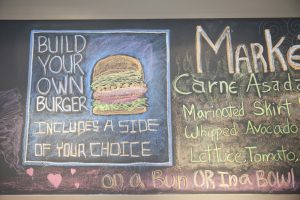 BUILD
YOUR
OWN
BURGER
INCLUDES A SIDE
OF YOUR CHOICE
MARKE
Carne Asada
Marinated Skirt
Whipped Avocado
Lettuce, Tomato,
on a Bun OR In a BOWL